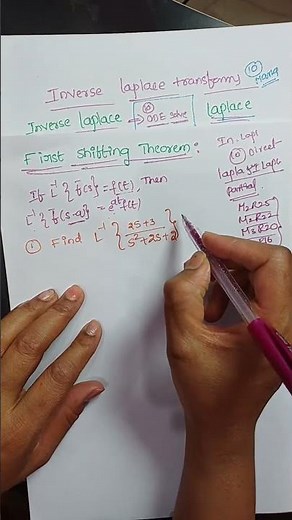 Inverse laplace transforms (10) Marks
Inverse laplace → ODE solve laplace
First Shifting Theorem:
If L⁻¹ { f(s) } = f(t), Then
L⁻¹ { f(s-a) } = e^{at} f(t)
① Find L⁻¹ { (2s+3)/(s²+2s+2) }
In. Lapl
Direct
partial
M2R23
M2R22
M3R20